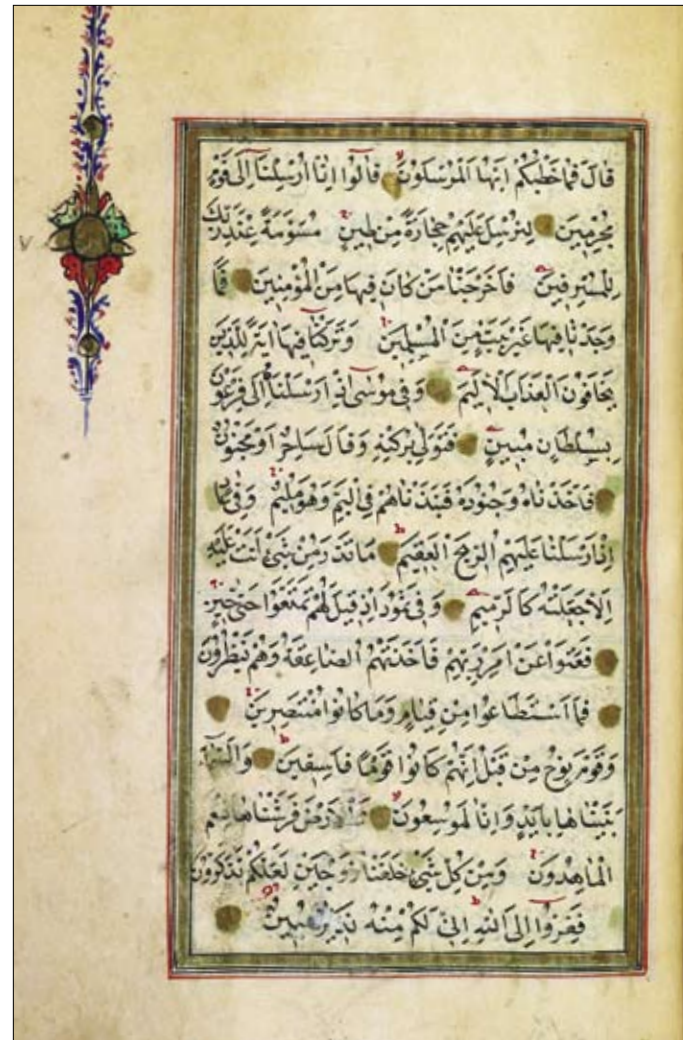 قَالَ فَمَا خَطْبُكُمْ اَيُّهَا الْمُرْسَلُونَ قَالُوا اِنَّا اُرْسِلْنَا اِلٰى قَوْمٍ
مُجْرِمِينَ لِنُرْسِلَ عَلَيْهِمْ حِجَارَةً مِنْ طِينٍ مُسَوَّمَةً عِنْدَ رَبِّكَ
لِلْمُسْرِفِينَ فَاَخْرَجْنَا مَنْ كَانَ فِيهَا مِنَ الْمُؤْمِنِينَ فَمَا
وَجَدْنَا فِيهَا غَيْرَ بَيْتٍ مِنَ الْمُسْلِمِينَ وَتَرَكْنَا فِيهَا اٰيَةً لِلَّذِينَ
يَخَافُونَ الْعَذَابَ الْاَلِيمَ وَفِي مُوسٰى اِذْ اَرْسَلْنَاهُ اِلٰى فِرْعَوْنَ
بِسُلْطَانٍ مُبِينٍ فَتَوَلّٰى بِرُكْنِهِ وَقَالَ سَاحِرٌ اَوْ مَجْنُونٌ
فَاَخَذْنَاهُ وَجُنُودَهُ فَنَبَذْنَاهُمْ فِي الْيَمِّ وَهُوَ مُلِيمٌ وَفِي عَادٍ
اِذْ اَرْسَلْنَا عَلَيْهِمُ الرِّيحَ الْعَقِيمَ مَا تَذَرُ مِنْ شَيْءٍ اَتَتْ عَلَيْهِ
اِلَّا جَعَلَتْهُ كَالرَّمِيمِ وَفِي ثَمُودَ اِذْ قِيلَ لَهُمْ تَمَتَّعُوا حَتّٰى حِينٍ
فَعَتَوْا عَنْ اَمْرِ رَبِّهِمْ فَاَخَذَتْهُمُ الصَّاعِقَةُ وَهُمْ يَنْظُرُونَ
فَمَا اسْتَطَاعُوا مِنْ قِيَامٍ وَمَا كَانُوا مُنْتَصِرِينَ
وَقَوْمَ نُوحٍ مِنْ قَبْلُ اِنَّهُمْ كَانُوا قَوْمًا فَاسِقِينَ وَالسَّمَاءَ
بَنَيْنَاهَا بِاَيْدٍ وَاِنَّا لَمُوسِعُونَ وَالْاَرْضَ فَرَشْنَاهَا فَنِعْمَ
الْمَاهِدُونَ وَمِنْ كُلِّ شَيْءٍ خَلَقْنَا زَوْجَيْنِ لَعَلَّكُمْ تَذَكَّرُونَ
فَفِرُّوا اِلَى اللّٰهِ اِنِّي لَكُمْ مِنْهُ نَذِيرٌ مُبِينٌ